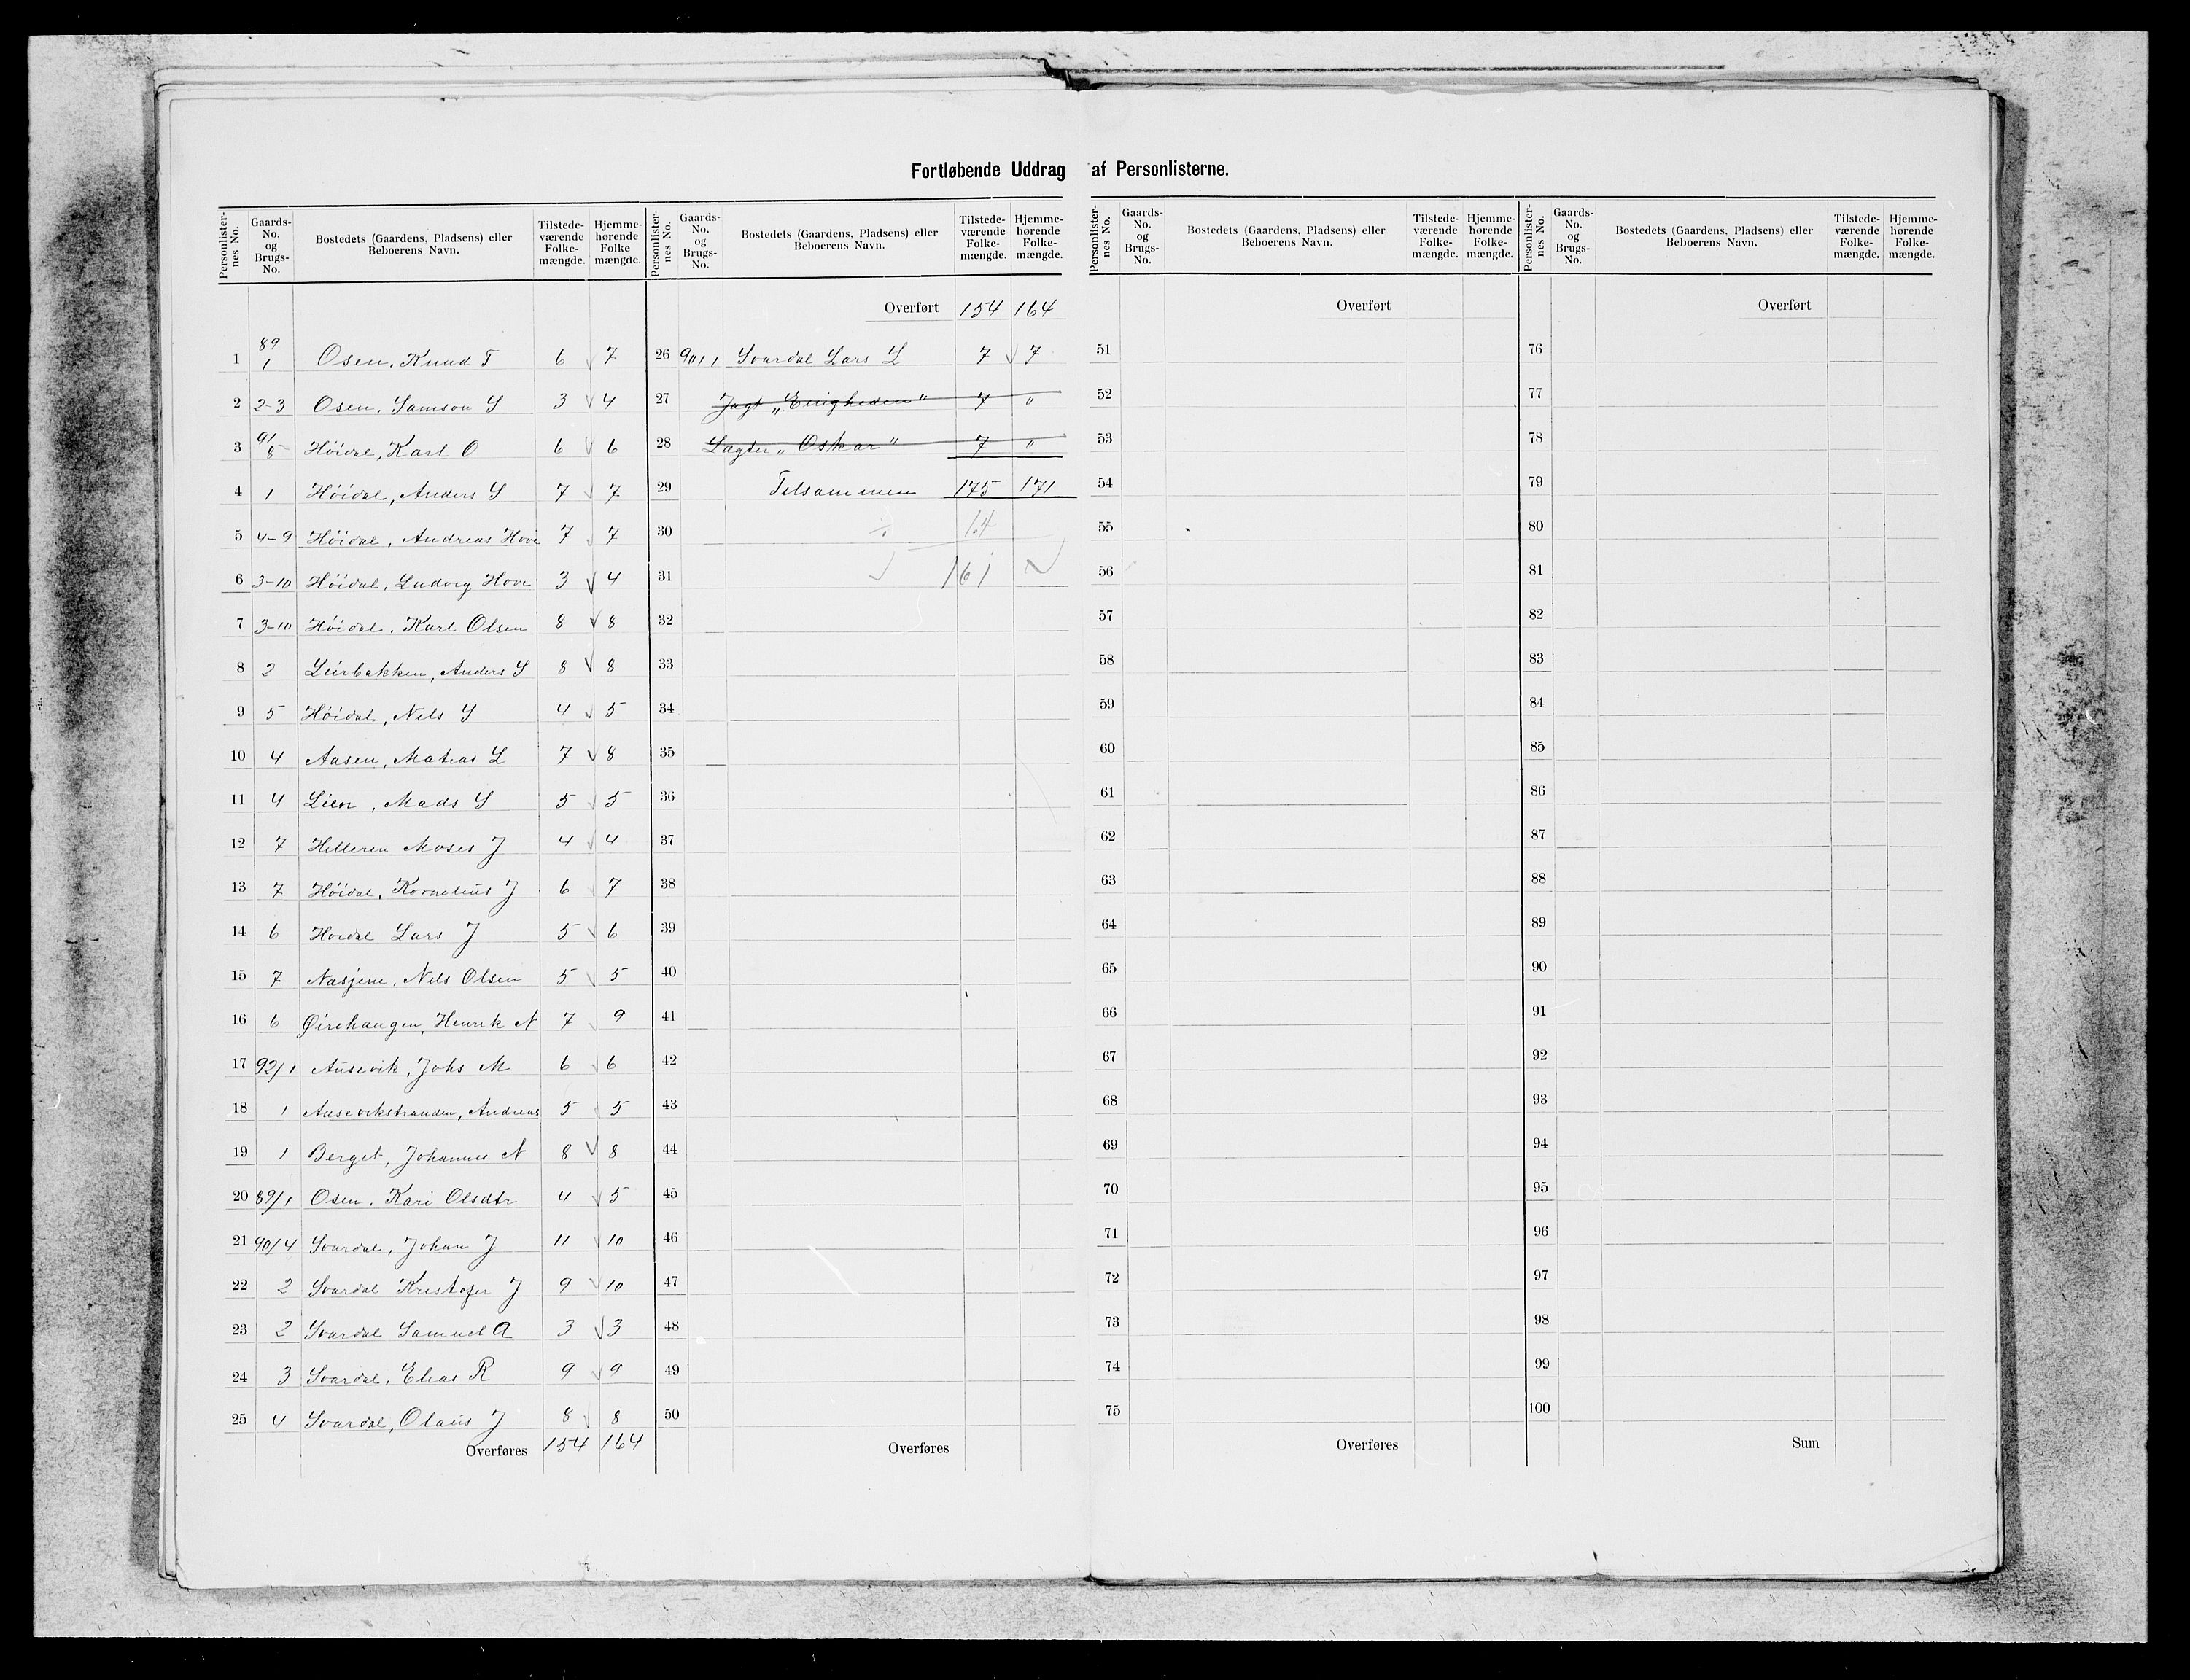 Fortløbende Uddrag af Personlisterne.
Personlister-nes No. Gaards-No. og Brugs-No. Bostedets (Gaardens, Pladsens) eller Beboerens Navn. Tilstede-værende Folke-mængde. Hjemme-hørende Folke mængde.
Personlister-nes No. Gaards-No. og Brugs-No. Bostedets (Gaardens, Pladsens) eller Beboerens Navn. Tilstede-værende Folke-mængde. Hjemme-hørende Folke-mængde.
Personlister-nes No. Gaards-No. og Brugs-No. Bostedets (Gaardens, Pladsens) eller Beboerens Navn. Tilstede-værende Folke-mængde. Hjemme-hørende Folke-mængde.
Personlister-nes No. Gaards-No. og Brugs-No. Bostedets (Gaardens, Pladsens) eller Beboerens Navn. Tilstede-værende Folke-mængde. Hjemme-hørende Folke-mængde.
1 89/1 Osen, Knud T 6 √ 7
2 2-3 Osen, Samson S 3 √ 4
3 91/8 Höidal, Karl O 6 √ 6
4 1 Höidal, Anders S 7 √ 7
5 4-9 Höidal, Andreas Hove 7 √ 7
6 3-10 Höidal, Ludvig Hove 3 √ 4
7 3-10 Höidal, Karl Olsen 8 √ 8
8 2 Leirbakken, Anders S 8 √ 8
9 5 Höidal, Nils S 4 √ 5
10 4 Aasen, Matias L 7 √ 8
11 4 Lien, Mads S 5 √ 5
12 7 Helleren Moses J 4 √ 4
13 7 Höidal, Kornelius J 6 √ 7
14 6 Hoidal Lars J 5 √ 6
15 7 Næsjene, Nils Olsen 5 √ 5
16 6 Øirehaugen, Henrik N 7 √ 9
17 92/1 Ausevik, Johs M 6 √ 6
18 1 Ausevikstranden, Andreas 5 √ 5
19 1 Berget, Johannes N 8 √ 8
20 89/1 Osen, Kari Olsdtr 4 √ 5
21 90/4 Svardal, Johan J 11 √ 10
22 2 Svardal Kristofer J 9 √ 10
23 2 Svardal Samuel A 3 √ 3
24 3 Svardal, Elias R 9 √ 9
25 4 Svardal, Olaus J 8 √ 8
Overføres 154 164
Overført 154 164
26 90/1 Svardal Lars L 7 √ 7
27 Jagt „Enigheden" 7 "
28 Lægter „Oskar" 7 "
29 Tilsammen 175 171
30 ÷ 14
31 √ 161 √
32
33
34
35
36
37
38
39
40
41
42
43
44
45
46
47
48
49
50
Overføres
Overført
51
52
53
54
55
56
57
58
59
60
61
62
63
64
65
66
67
68
69
70
71
72
73
74
75
Overføres
Overført
76
77
78
79
80
81
82
83
84
85
86
87
88
89
90
91
92
93
94
95
96
97
98
99
100
Sum